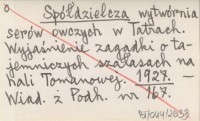 Spółdzielcza wytwórnia
serów owczych w Tatrach.
Wyjaśnienie zagadki o ta-
jemniczych szałasach na
hali Tomanowej. 1927. —
Wiad. z Podh. nr 167.